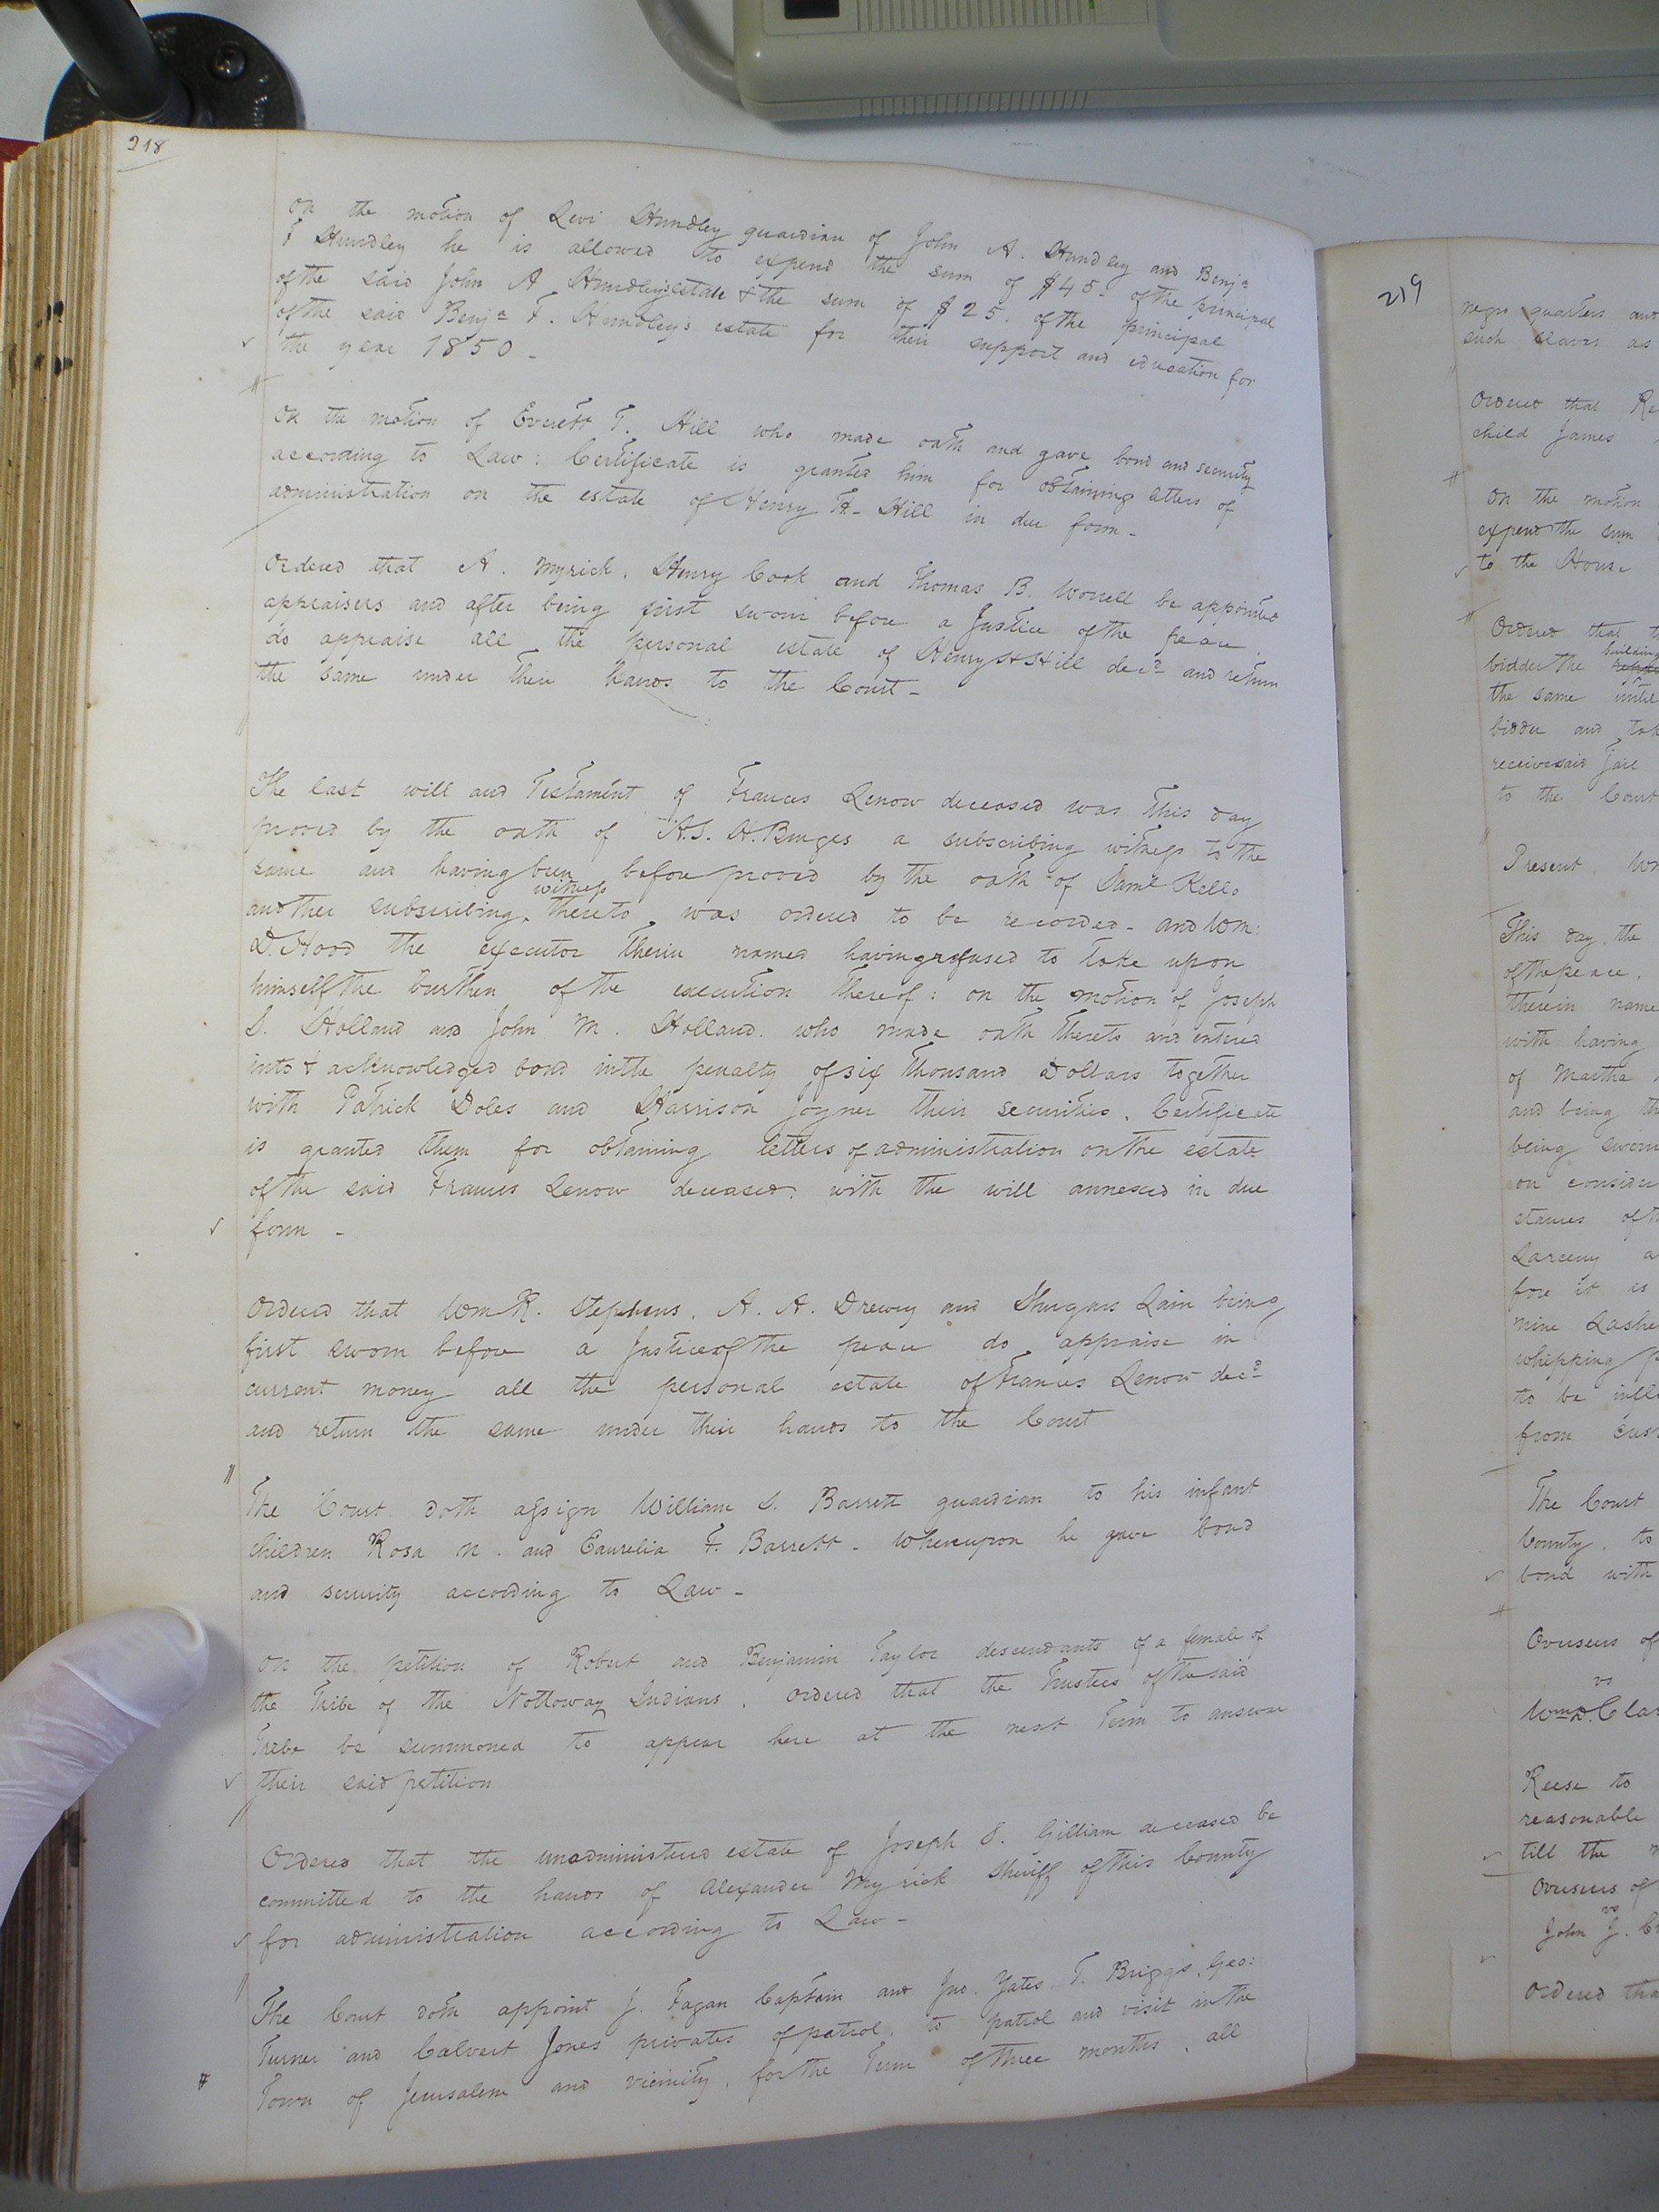 218
On the motion of Levi Hundley guardian of John A. Hundley and Benja
F Hundley he is allowed to expend the sum of $45- of the principal
of the said John A Hundley's estate & the sum of $25. of the principal
of the said Benja F. Hundley's estate for their support and education for
the year 1850-
On the motion of Everett T. Hill who made oath and gave bond and security
according to Law: Certificate is granted him for obtaining letters of
administration on the estate of Henry H. Hill in due form-
Ordered that A. Myrick, Henry Cook and Thomas B. Worrell be appointed
appraisers and after being first sworn before a Justice of the peace
do appraise all the personal estate of Henry H Hill decd and return
the same under their hands to the Court-
The last will and Testament of Frances Lenow deceased was this day
proved by the oath of A.S. H. Burges a subscribing witness to the
same and having been before proved by the oath of Saml Kello
witness
another subscribing thereto, was ordered to be recorded- and Wm:
D. Hood the executor therein named having refused to take upon
himself the burthen of the execution thereof: on the motion of Joseph
S. Holland and John M. Holland, who made oath thereto and entered
into & acknowledged bond in the penalty of six thousand Dollars together
with Patrick Doles and Harrison Joyner their securities, Certificate
is granted them for obtaining letters of administration on the estate
of the said Frances Lenow deceased, with the will annexed in due
form-
Ordered that Wm R. Stephens, A. A. Drewry and Lain being
first sworn before a Justice of the peace do appraise in
current money all the personal estate of Frances Lenow decd
and return the same under their hands to the Court
The Court doth assign William S. Barrett guardian to his infant
children Rosa M. and F. Barrett- Whereupon he gave bond
and security according to Law-
On the petition of Robert and Benjamin Taylor descendants of a female of
the Tribe of the Nottoway Indians, ordered that the Trustees of the said
Tribe be summoned to appear here at the next Term to answer
their said petition
Ordered that the unadministered estate of Joseph S. Gilliam deceased be
committed to the hands of Alexander Myrick Sheriff of this County
for administration according to Law-
The Court doth appoint J. Fagan Captain and Jno. Yates, T. Briggs, Geo:
Turner and Calvert Jones privates of patrol, to patrol and visit in the
Town of Jerusalem and vicinity, for the Term of three months, all
219
negro quarters and
such slaves as
Ordered that
child James
On the motion
expend the sum
to the House
Ordered that
building
bidder the
the same until
bidder and
receive said Jail
to the Court
Present,
This day the
of the peace,
therein name
with having
of Martha
and being
being sworn
on consider
stances of
Larceny
fore it is
nine Lashe
whipping
to be
from
The Court
County, to
bond with
Overseers of
vs
Wm D. Cla
Reese to
reasonable
till the
Overseers of
vs
John J.
Ordered tha